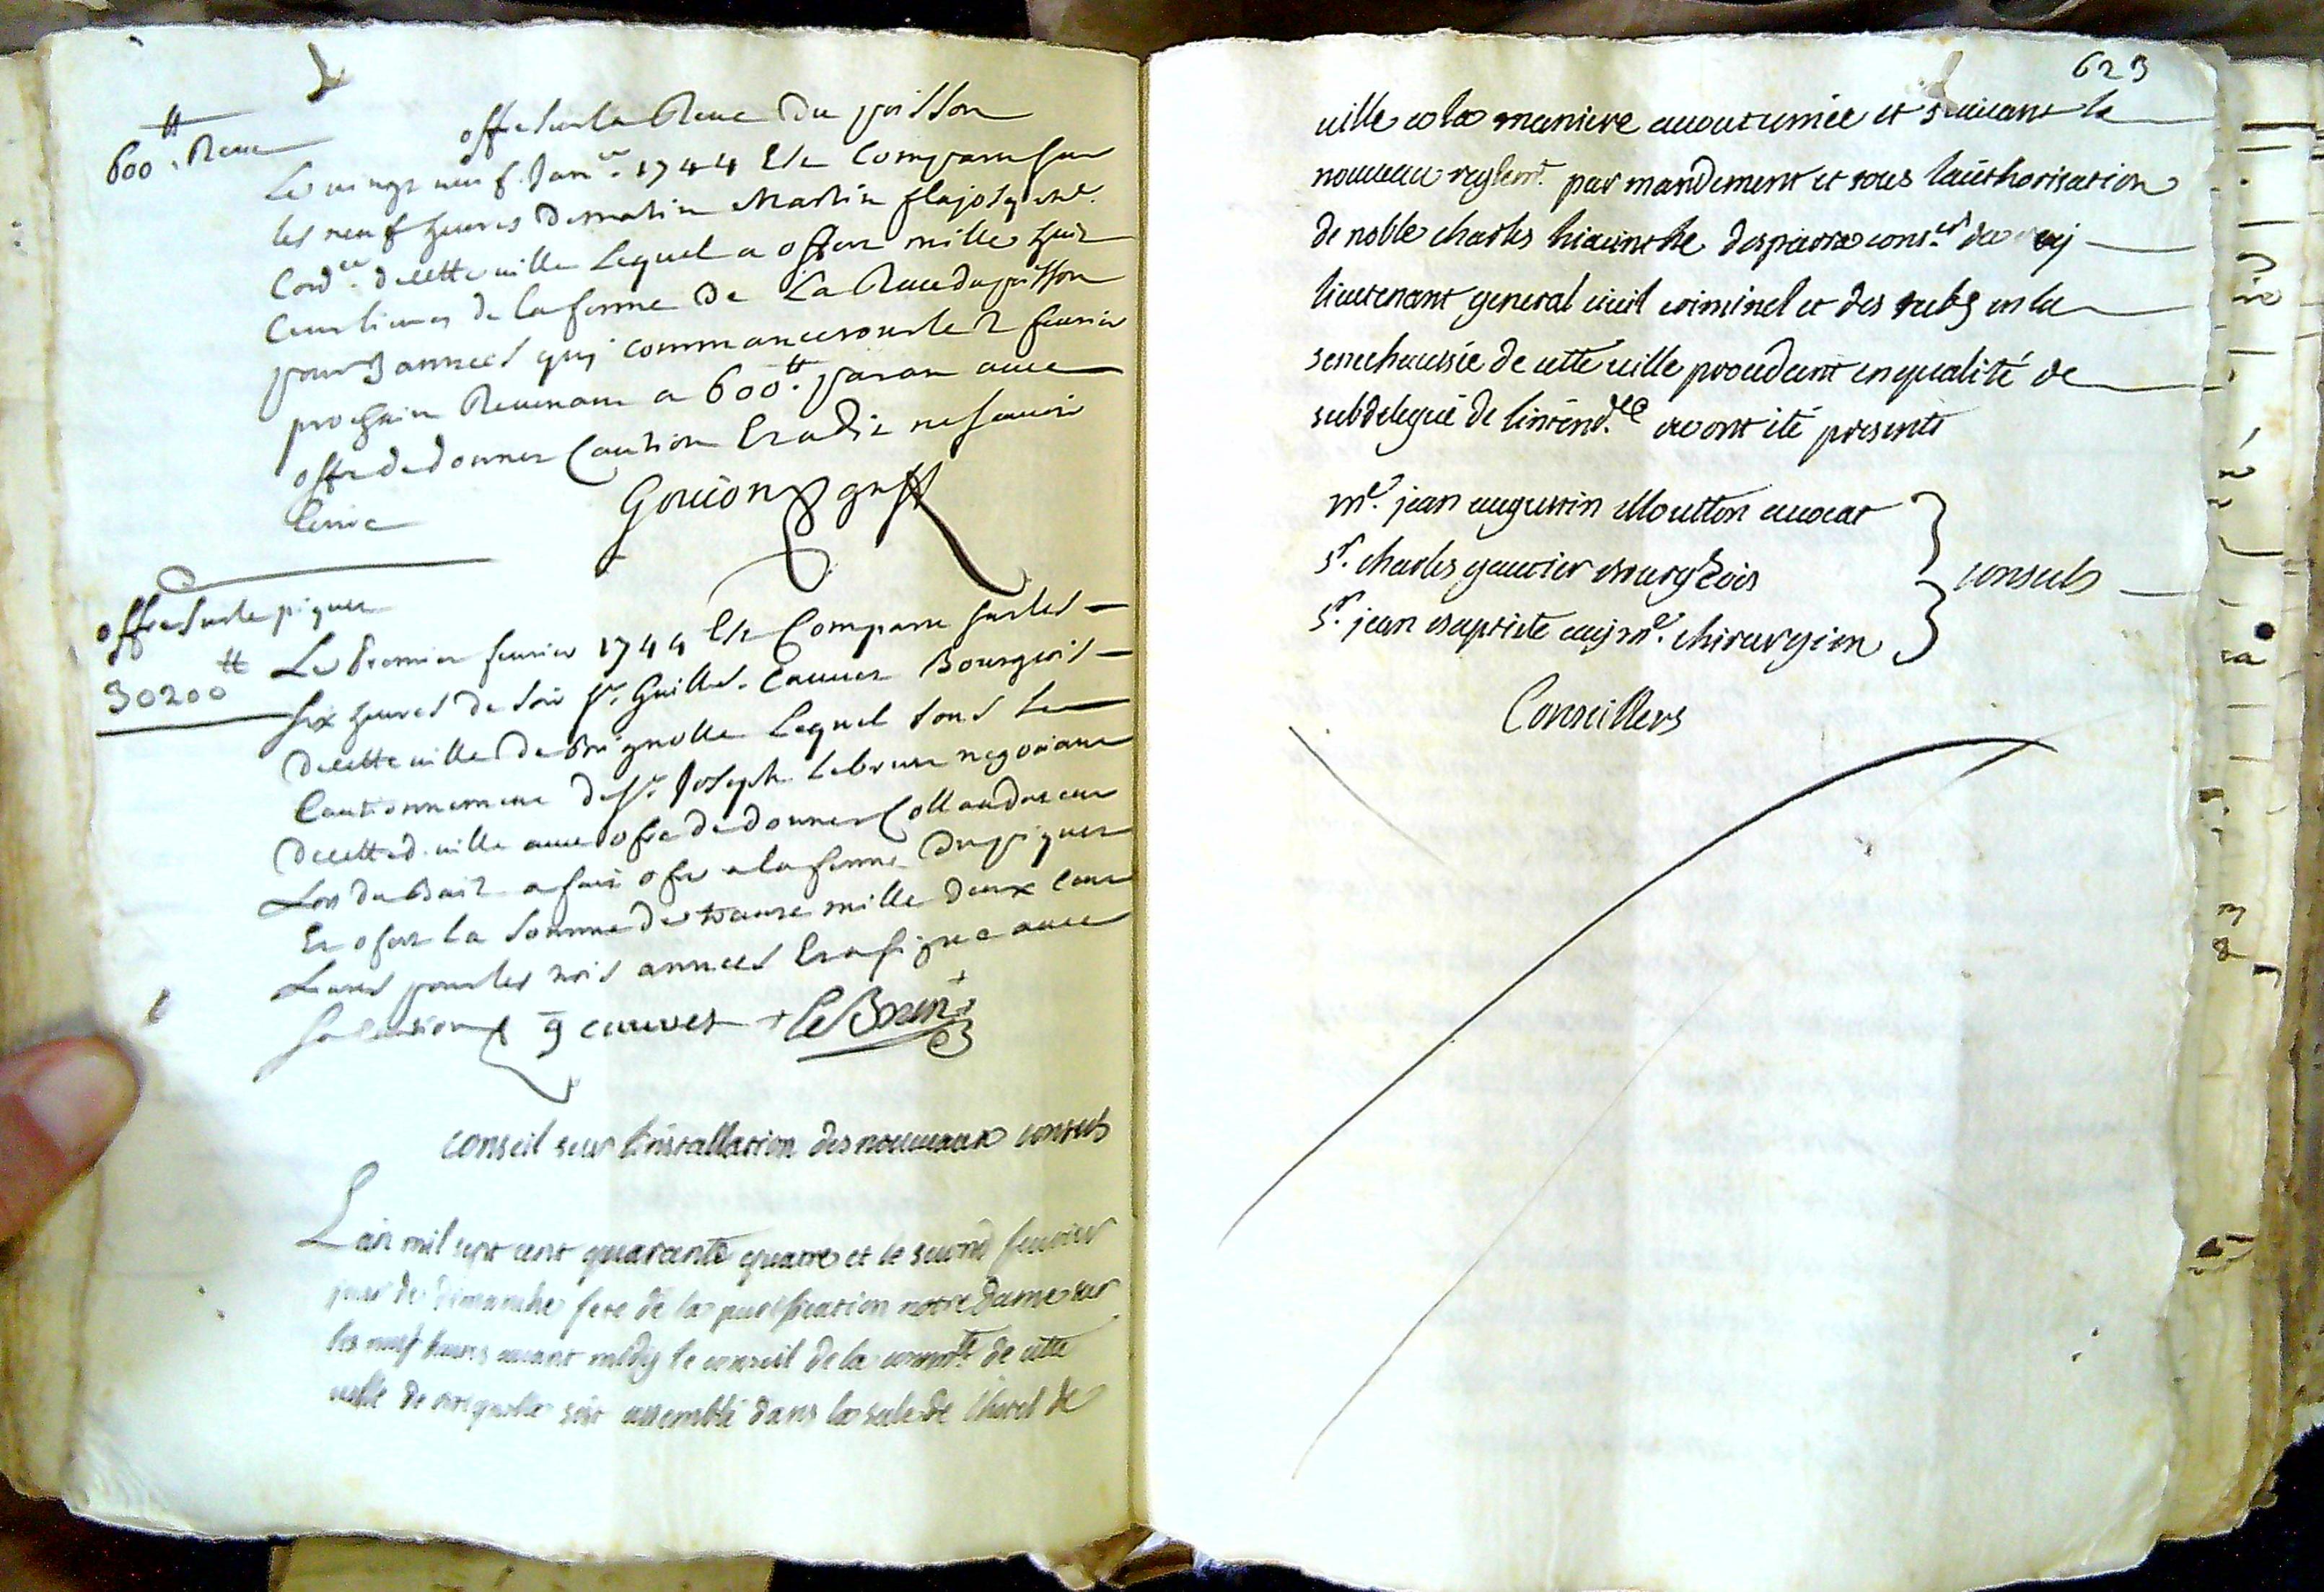 600 ₶. Reve
offre sur la Reve du poisson
Le vingt neuf Janer. 1744 Est Comparu sur
les neuf heures de matin Martin flajosq me.
Cordr. de cette ville Lequel a offert mille huit
Cens livres de la ferme de La Reve du poisson
pour 3 années quj commanceront le 2 fevrier
prochain Revenant a 600 ₶. par an avec
offre de donner Caution Et a dit ne scavoir
Ecrire
Goujon gref
offre sur le piquet
30200 ₶
Le Premier fevrier 1744 Est Comparu sur les
six heures de soir sr. Guillet. Cauvet Bourgeois
de cette ville de Brignolle Lequel sous Le
Cautionnement de sr. Joseph Lebrun negotiant
de cette d. ville avec ofre de donner Collaudateur
Lors du Bail a fait ofre a la ferme du piquet
Et ofert la somme de trante mille deux Cens
Livres pour les trois années Et a signé avec
sa Caution g cauvet + le Brun +
conseil sur l'installation des nouveaux consuls
L'an mil sept cent quarante quatre et le second fevrier
jour de dimanche fete de la purification notre dame sur
les neuf heures avant midy le conseil de la commté. de cette
ville de brignolle s'est assemblé dans la sale de l'hotel de
623
ville a la maniere accoutumée et suivant le
nouveau reglemt. par mandement et sous l'authorisation
de noble charles hiacinthe desparra conser. du roy
lieutenant general civil criminel et des subs en la
senechaussée de cette ville procedant en qualité de
subdelegué de l'intendce. ou ont été presents
me. jean augustin Moutton avocat
sr. charles gautier bourgeois
consuls
sr. jean baptiste me. chirurgien
Conseillers